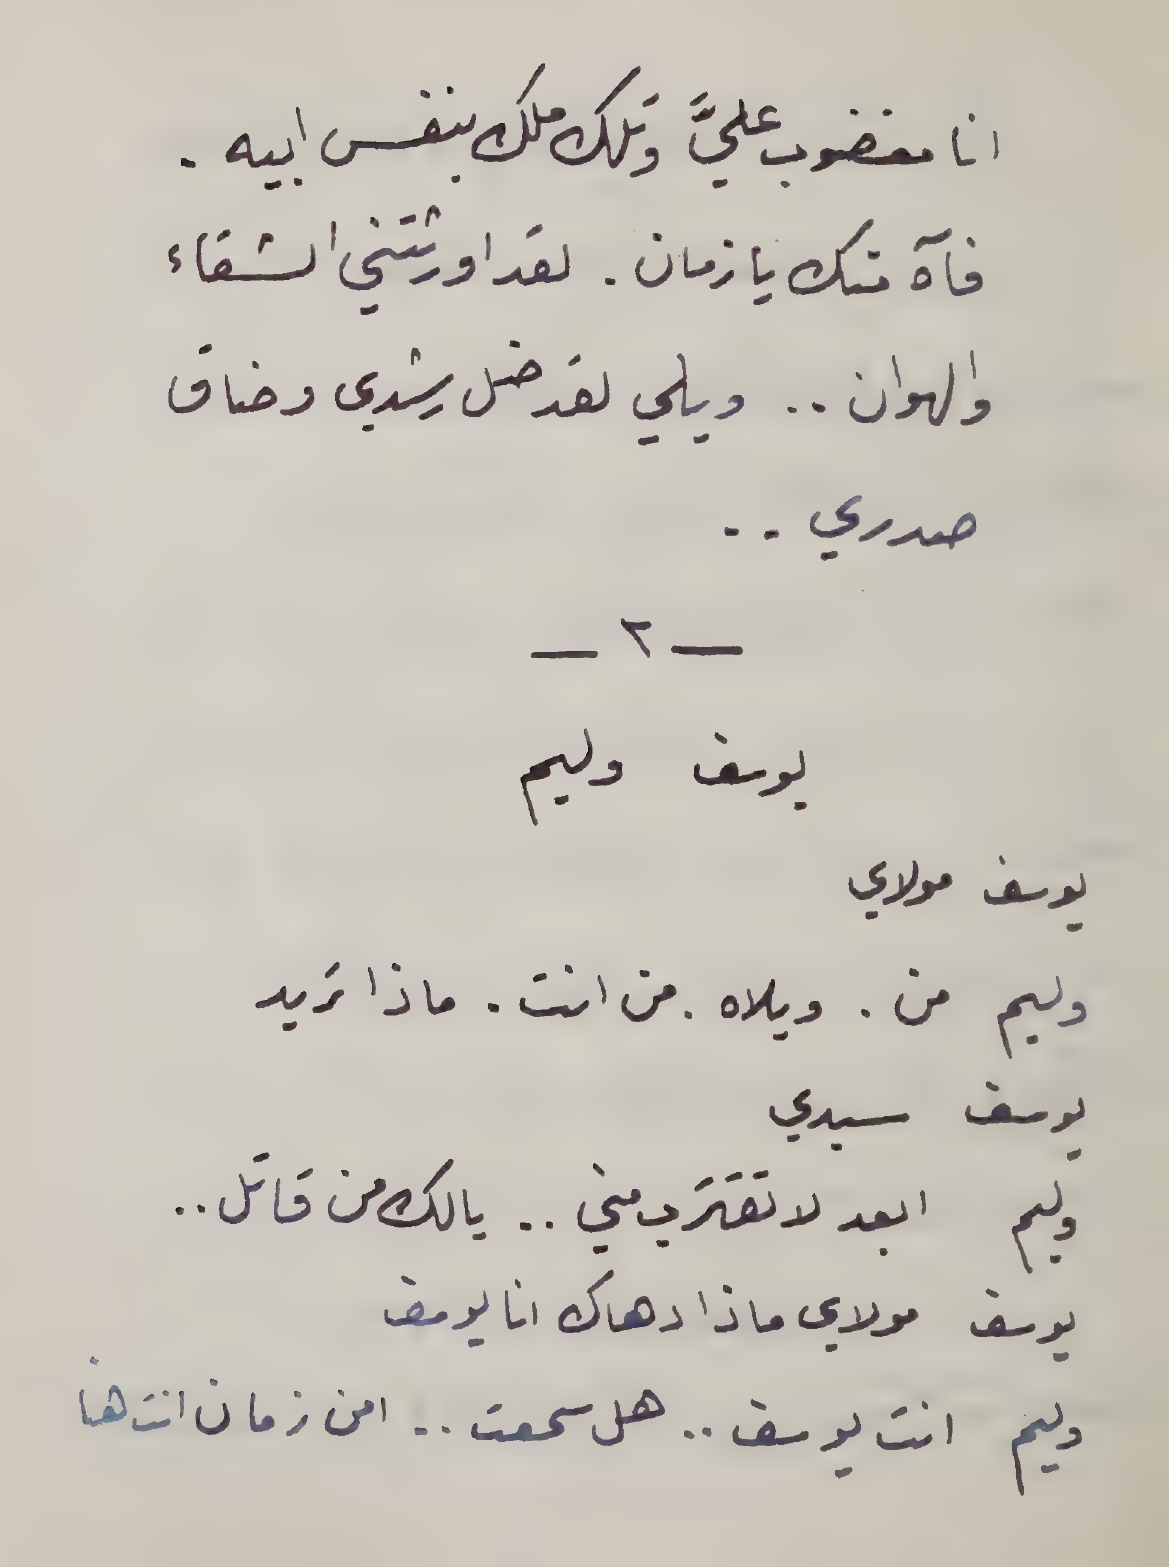 انا مغضوب عليَّ وتلك ملك بنفس ابيه .
فآه منك يا زمان . لقد اورثتني الشقاء
والهوان .. ويلي لقد ضل رشدي وضاق
صدري ..
— ٢ —
يوسف وليم
يوسف مولاي
وليم من . ويلاه . من انت . ماذا تريد
يوسف سيدي
وليم ابعد لا تقترب مني .. يالك من قاتل ..
يوسف مولاي ماذا دهاك انا يوسف
وليم انت يوسف .. هل سمعت .. امن زمان انت هنا